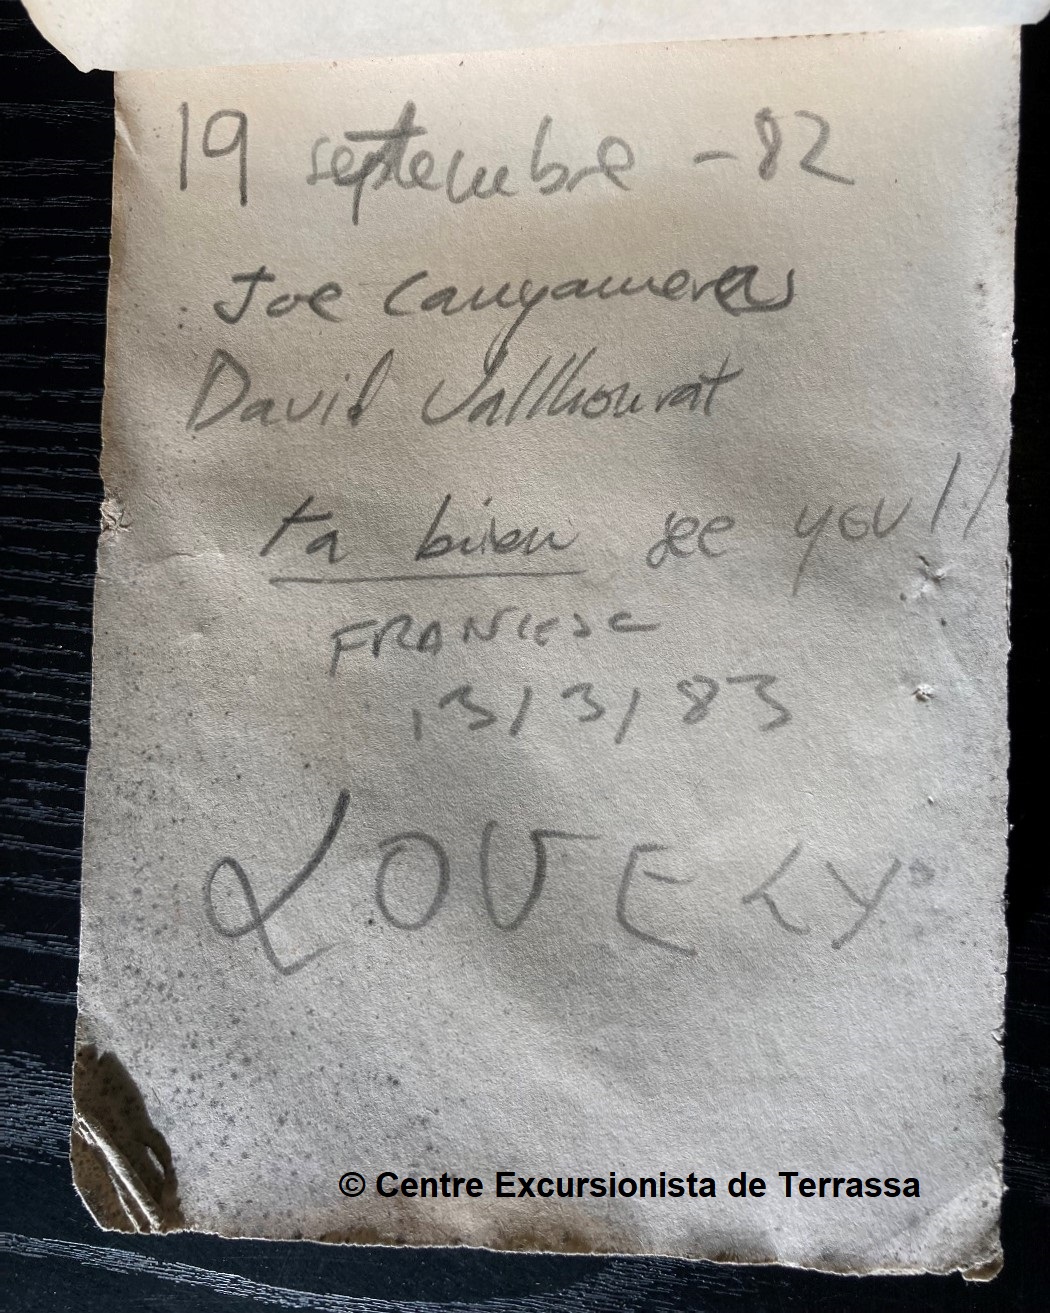 19 septembre - 82
Joe Canyameras
David Vallhonrat
ta bien see you!!
FRANCESC
13/3/83
LOVELY
© Centre Excursionista de Terrassa